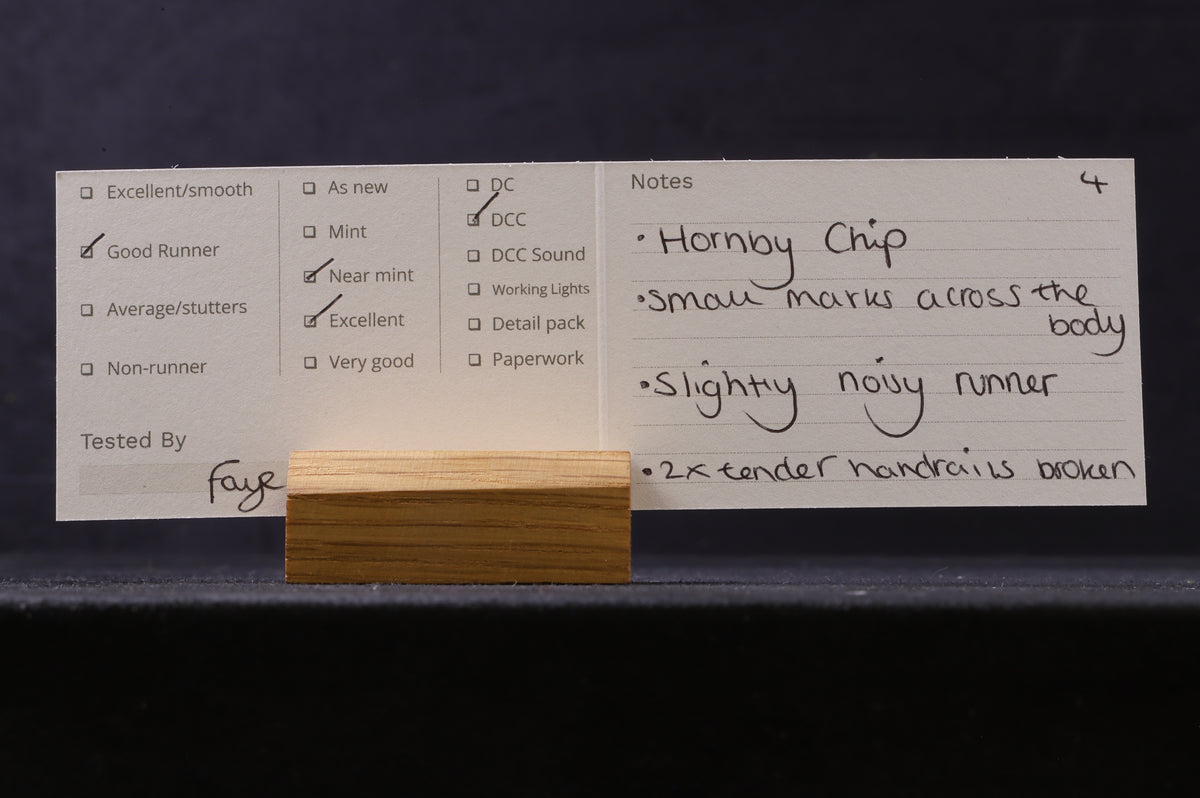 Excellent/smooth
Good Runner
Average/stutters
Non-runner
Tested By
Faye
As new
Mint
Near mint
Excellent
Very good
DC
DCC
DCC Sound
Working Lights
Detail pack
Paperwork
Notes 4
• Hornby Chip
• Small marks across the
body
• Slightly noisy runner
• 2x tender handrails broken